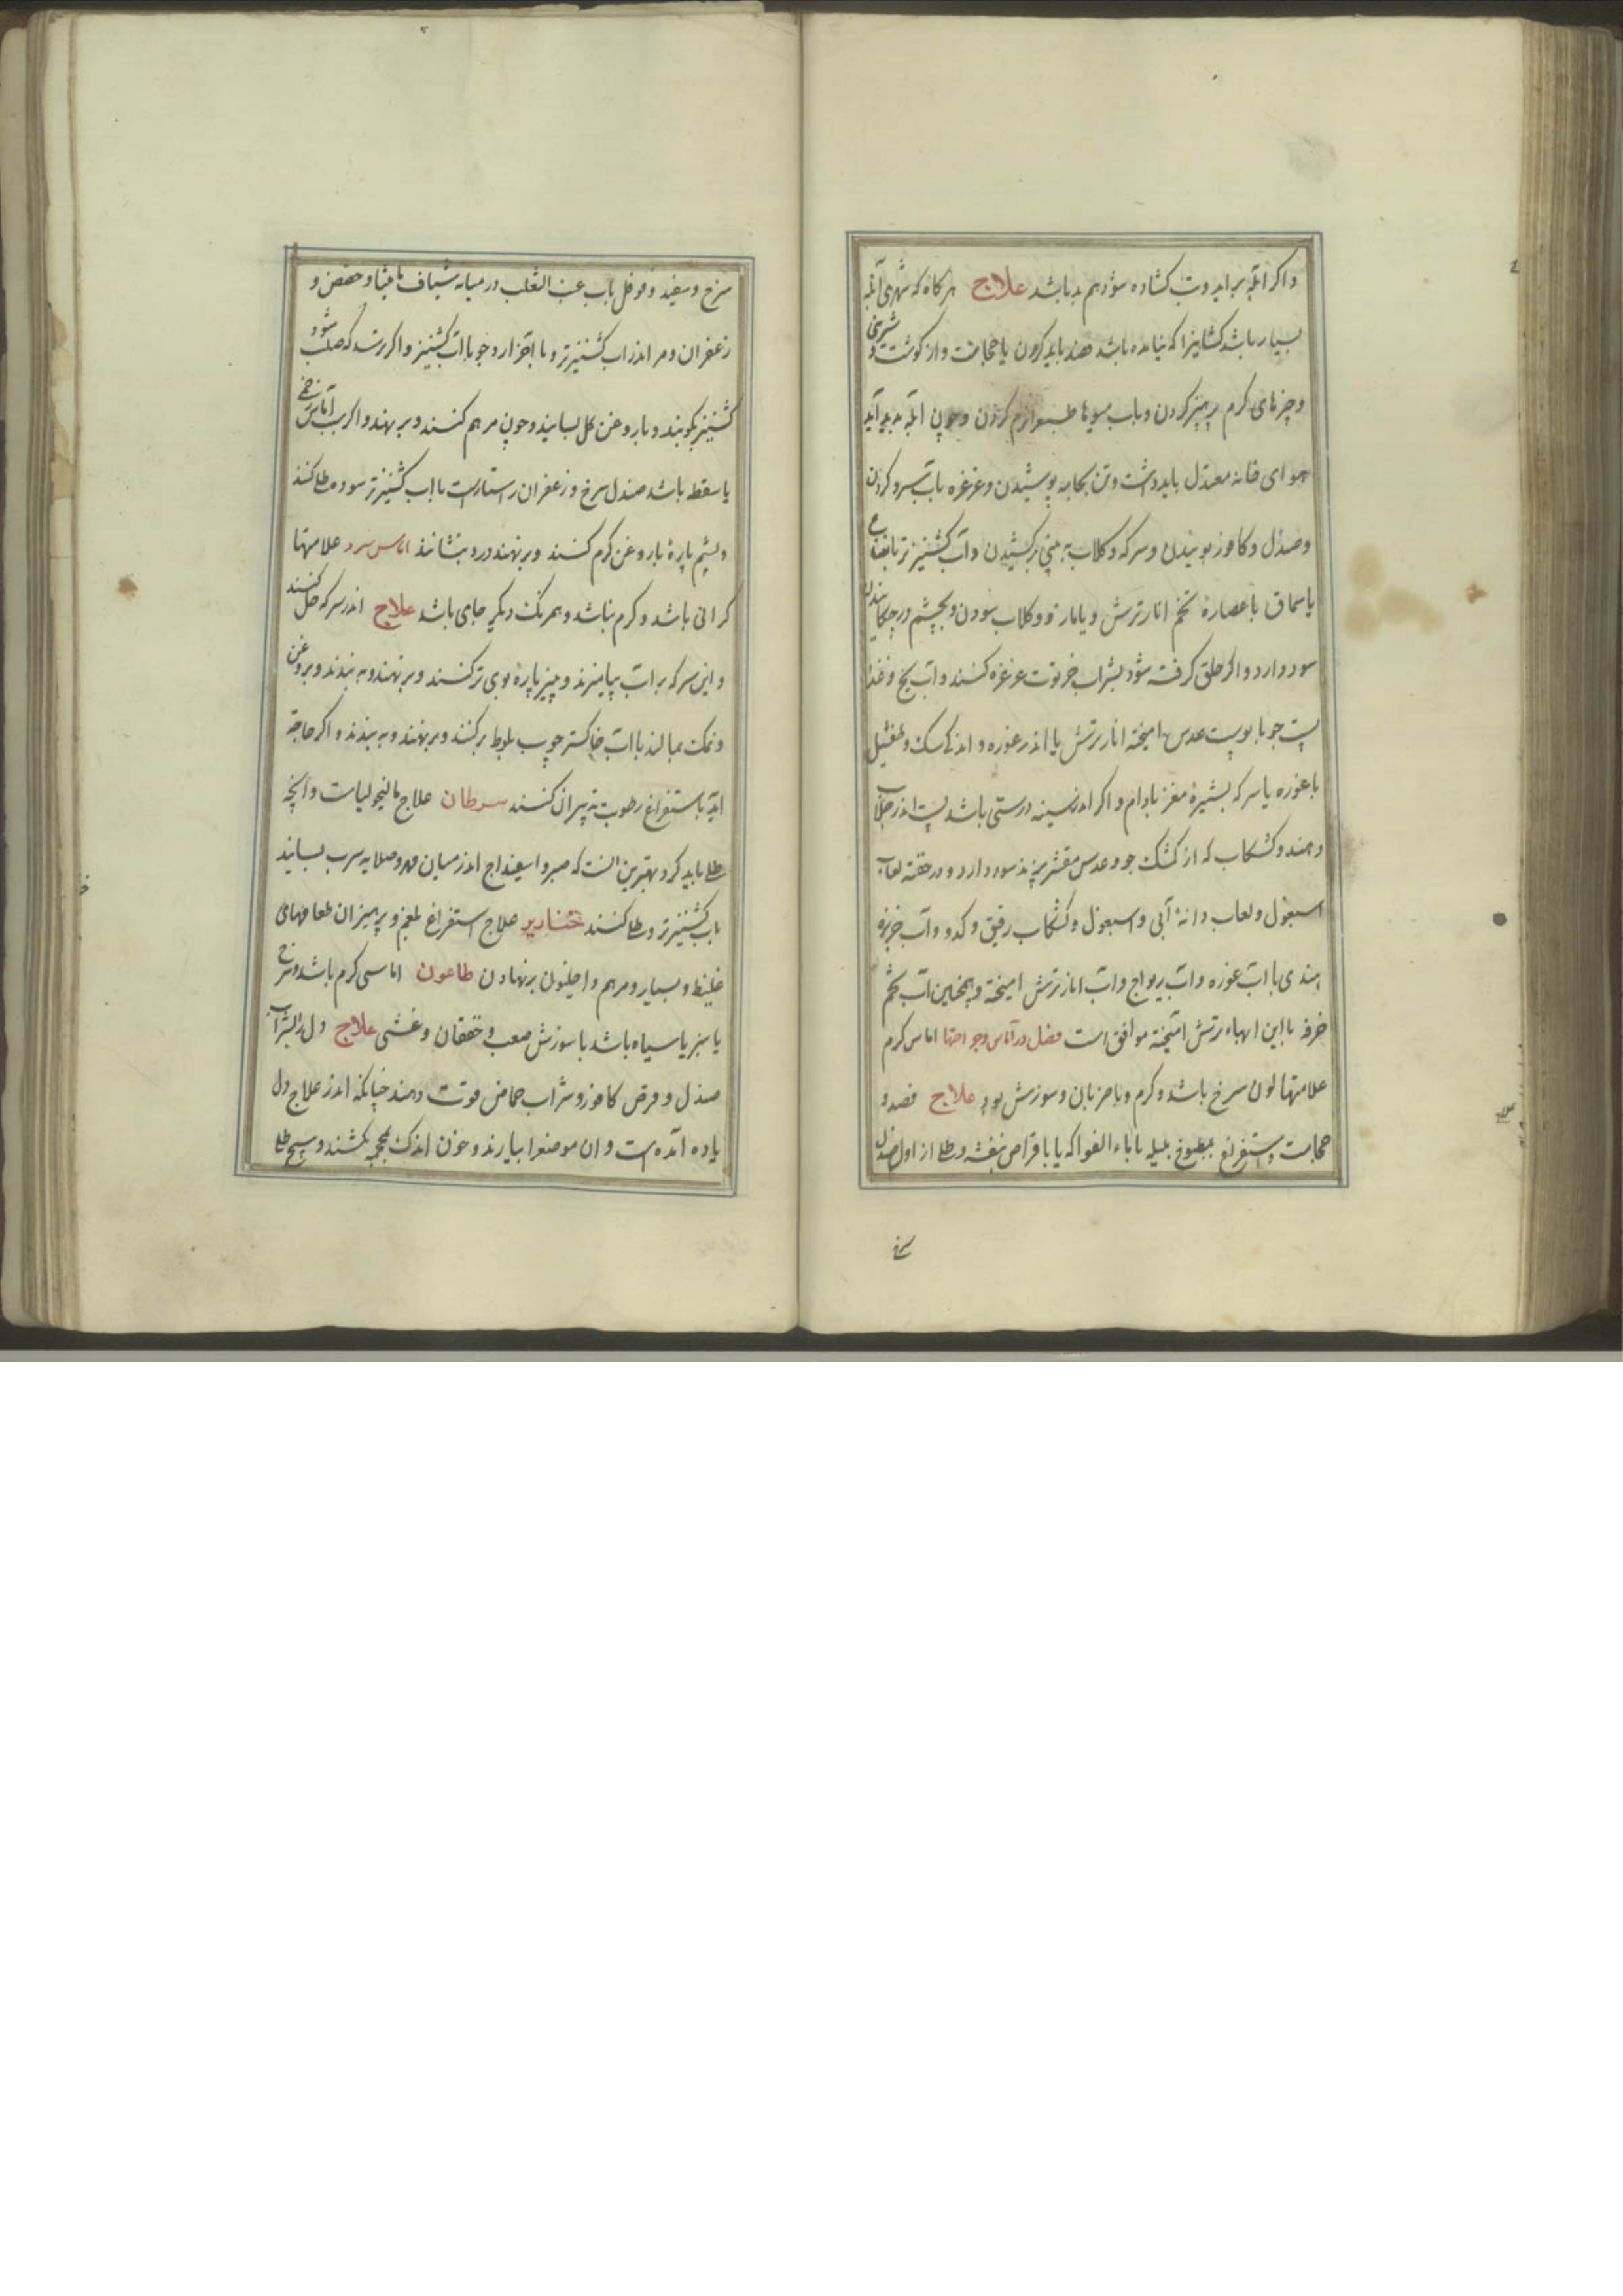 واکر ابله براید و تب کشاده شود هم بد باشد علاج هرکاه که شهری آبله
بسیار باشد کسانیرا که نیامده باشد فصد باید کردن یا حجامت و از کوشت و شیرینی
و چیزهای کرم پرهیز کردن و باب میوها طبع نرم کردن و چون ابله پدید آید
هوای خانه معتدل باید داشت و تن بجامه پوشیدن و غرغره باب سرد کردن
و صندل و کافور بوییدن و سرکه و کلاب به بینی برکشیدن و آب کشنیز تر با
یا سماق با عصارهٔ تخم انار ترش و یا مازو و کلاب سودن و بچشم در چکانیدن
سود دارد و اکر حلق کرفته شود بشراب خرتوت غرغره کنند و آب یخ و غذا
پست جو با پوست عدس امیخته انار ترش یا اندر غوره و اندکی سک و طفشیل
با غوره یا سرکه بشیرهٔ مغز بادام و اکر اندر سینه درستی باشد پست اندر جلاب
دهند و کشکاب که از کشک جو و عدس مقشر پزند سود دارد و در حقنه لعاب
اسبغول و لعاب دانهٔ آبی و اسبغول و کشکاب رقیق و کدو و آب خربزه
هندی با اب غوره و اب ریواج و اب انار ترش امیخته و همچنین آب تخم
خرفه با این ابهاء ترش امیخته موافق است فصل در آماس و جراحتها اماس کرم
علامتها لون سرخ باشد و کرم و با ضربان و سوزش بود علاج فصد و
حجامت و استفراغ بمطبوخ هلیله یا باء الفواکه یا باقراص بنفشه و طلا از اول صندل
سرخ
سرخ و سفید و فوفل باب عنب الثعلب در میانه شیاف مامیثا و حضض و
زعفران و مر اندر اب کشنیز تر و با آرد جو با اب کشنیز و اکر ترسد که صلب شود
کشنیز بکوبند و با روغن کل بسایند و چون مرهم کنند و بر نهند و اکر سبب آماس زخم
یا سقط باشد صندل سرخ و زعفران راست باب کشنیز تر سوده طلا کنند
و پشم پارهٔ با روغن کرم کنند و بر نهند درد بنشانذ اماس سرد علامتها
کرانی باشد و کرم نباشد و همرنک دیکر جای باشد علاج اندر سرکه حل کنند
و این سرکه بر اب بیامیزند و پارهٔ بوی تر کنند و بر نهند و به بندند و بروغن
و نمک بمالند با اب خاکستر چوب بلوط بر کنند و بر نهند و به بندند و اکر حاجة
اید باستفراغ رطوبت تدبیر ان کنند سرطان علاج مالیخولیاست و آنچه
طلا باید کرد بهترین انست که صبر و اسفیداج اندر میان هر و صلابه سرب بسایند
باب کشنیز تر و طلا کنند خنازیر علاج استفراغ بلغم و پرهیز ان طعامهای
غلیظ و بسیار و مرهم داخلیون بر نهادن طاعون اماسی کرم باشد و سرخ
یا سبز یا سیاه باشد با سوزش صعب و خفقان و غشی علاج دل را بشراب
صندل و قرص کافور و شراب حماض قوت دهند چنانکه اندر علاج دل
یاده آمده است و ان موضعرا بیازند و خون اندک بمحجمه بکشند و هیچ طلا